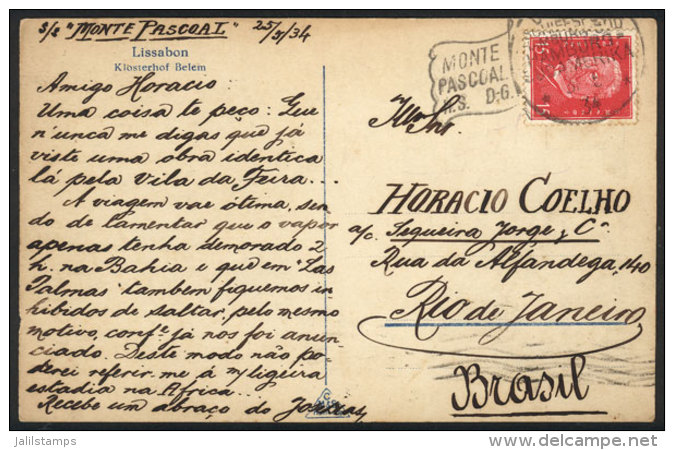 s/s "MONTE PASCOAL" 25/5/34
Lissabon
Klosterhof Belem
Amigo Horacio:
Uma coisa te peço: Que
n'unca me digas que já
viste uma obra identica
lá pela Vila da Feira...
A viagem vae ótima, sen
do de lamentar que o vapor
apenas tenha demorado 2
h. na Bahia e que em "Las
Palmas" tambem figuemos in
hibidos de saltar, pelo mesmo
motivo, confe. já nos foi anun
ciado. Deste modo não po
derei referir-me á my ligeira
estadia na Africa...
Recebe um abraço do
MONTE
PASCOAL
H.S. D.G.
HAMBURG
34
15
Illmo Snr.
HORACIO COELHO
a/c. Sequeira Jorge & Cª
Rua da Alfandega, 140
Rio de Janeiro
Brasil
jalilstamps
www.delcampe.net